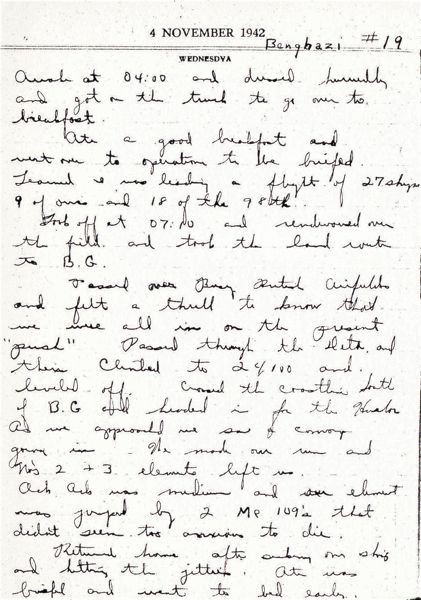 4 NOVEMBER 1942
Benghazi #19
WEDNESDYA
Awoke at 04:00 and dressed hurriedly
and got on the truck to go over to
breakfast.
Ate a good breakfast and
went over to operations to be briefed.
Learned I was leading a flight of 27 ships
9 of ours and 18 of the 98th.
Took off at 07:10 and rendezvoused over
the field and took the land route
to B.G.
Passed over many British Airfields
and felt a thrill to know that
we were all in on the present
"push" Passed through the Delta and
then Climbed to 24,100 and
leveled off. Crossed the coastline South
of B.G and headed in for the Harbor
As we approached we saw a convoy
going in - We made our run and
No's 2 + 3 elements left us.
Ack Ack was medium and our element
was jumped by 2 Me 109's that
didn't seem too anxious to die.
Returned home after our ship
and hitting the jetties. Ate was
briefed and went to bed early.